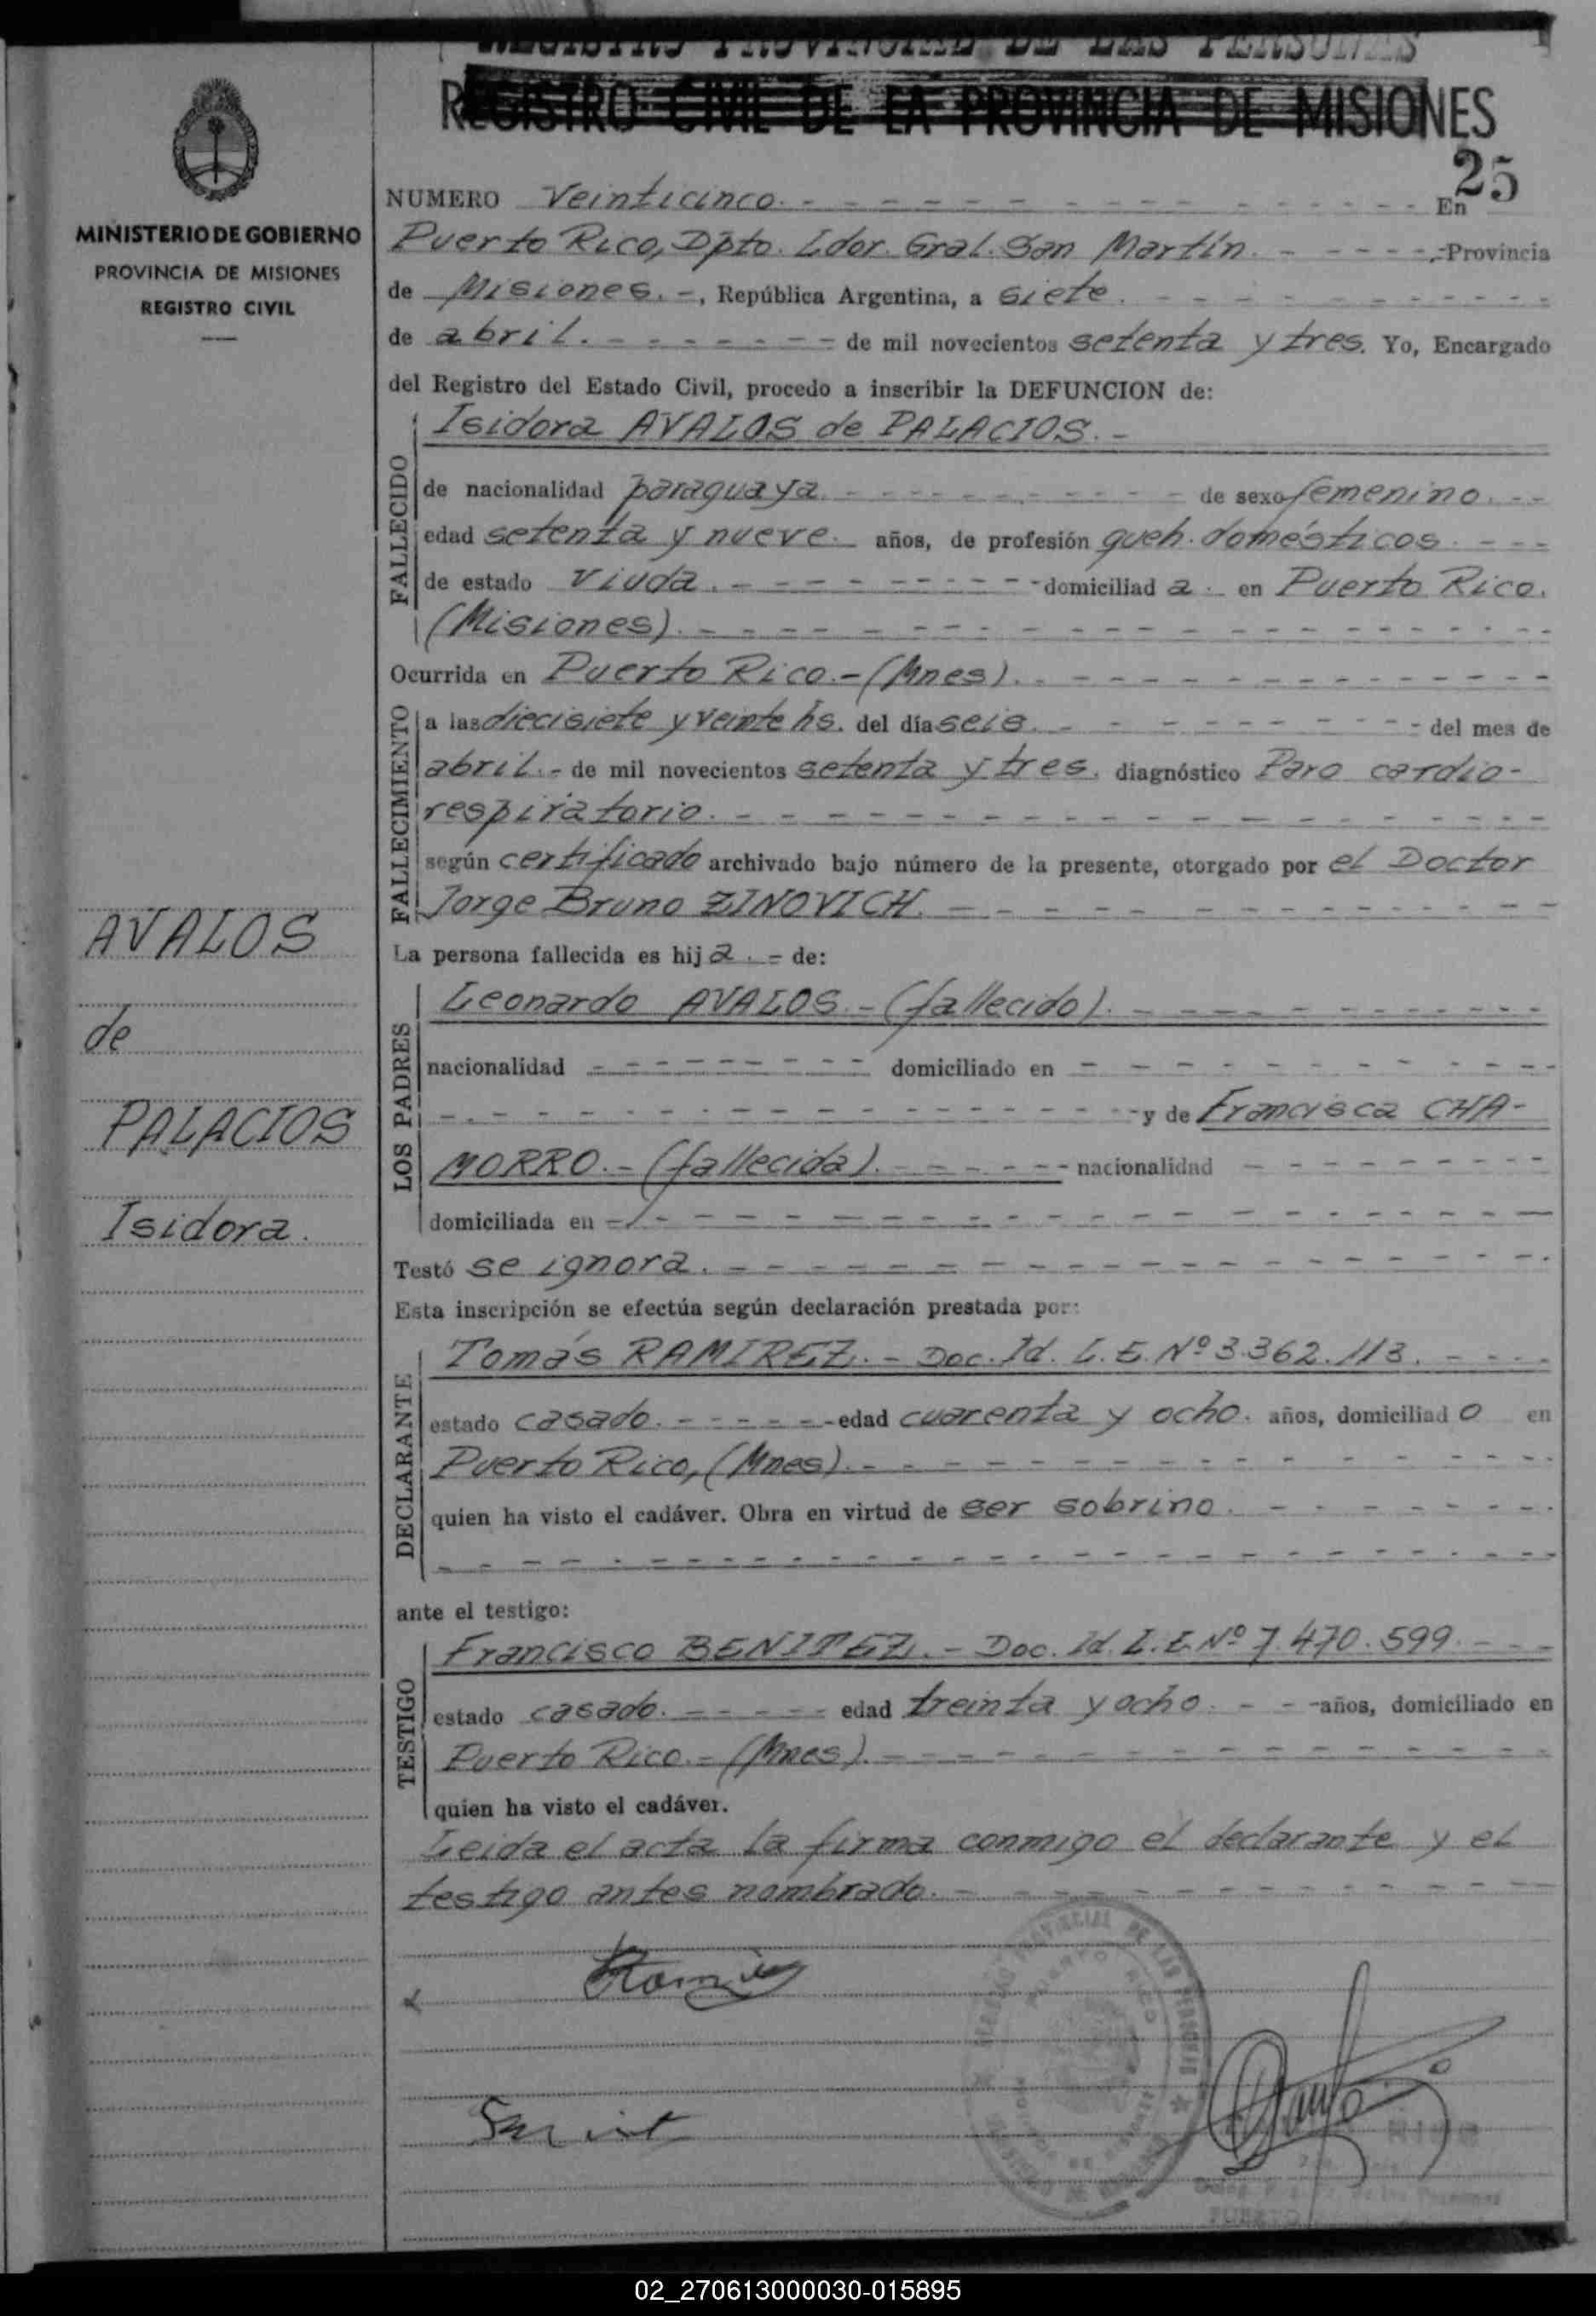 REGISTRO PROVINCIAL DE LAS PERSONAS
REGISTRO CIVIL DE LA PROVINCIA DE MISIONES
25
MINISTERIO DE GOBIERNO
PROVINCIA DE MISIONES
REGISTRO CIVIL
NUMERO Veinticinco. En
Puerto Rico, Dpto. Ldor. Gral. San Martín. - Provincia
de Misiones. -, República Argentina, a siete.
de abril. - de mil novecientos setenta y tres. Yo, Encargado
del Registro del Estado Civil, procedo a inscribir la DEFUNCION de:
FALLECIDO
Isidora AVALOS de PALACIOS. -
de nacionalidad paraguaya. - de sexo femenino. -
edad setenta y nueve. años, de profesión queh. domésticos. -
de estado viuda. - domiciliad a. en Puerto Rico.
(Misiones). -
Ocurrida en Puerto Rico. - (Mnes). -
FALLECIMIENTO
a las diecisiete y veinte hs. del día seis. - del mes de
abril. - de mil novecientos setenta y tres. diagnóstico Paro cardio-
respiratorio. -
según certificado archivado bajo número de la presente, otorgado por el Doctor
Jorge Bruno ZINOVICH. -
La persona fallecida es hij a. - de:
LOS PADRES
Leonardo AVALOS. - (fallecido). -
nacionalidad - domiciliado en -
- y de Francisca CHA-
MORRO. - (fallecida). - nacionalidad -
domiciliada en -
Testó se ignora. -
Esta inscripción se efectúa según declaración prestada por:
DECLARANTE
Tomás RAMIREZ. - Doc. Id. L. E. Nº 3.362.113. -
estado casado. - edad cuarenta y ocho. años, domiciliad o en
Puerto Rico, (Mnes). -
quien ha visto el cadáver. Obra en virtud de ser sobrino. -
ante el testigo:
TESTIGO
Francisco BENITEZ. - Doc. Id. L. E. Nº 7.470.599. -
estado casado. - edad treinta y ocho. - años, domiciliado en
Puerto Rico. - (Mnes). -
quien ha visto el cadáver.
Leida el acta la firma conmigo el declarante y el
testigo antes nombrado. -
AVALOS
de
PALACIOS
Isidora.
REGISTRO PROVINCIAL DE LAS PERSONAS
PUERTO RICO
PUERTO
02_270613000030-015895